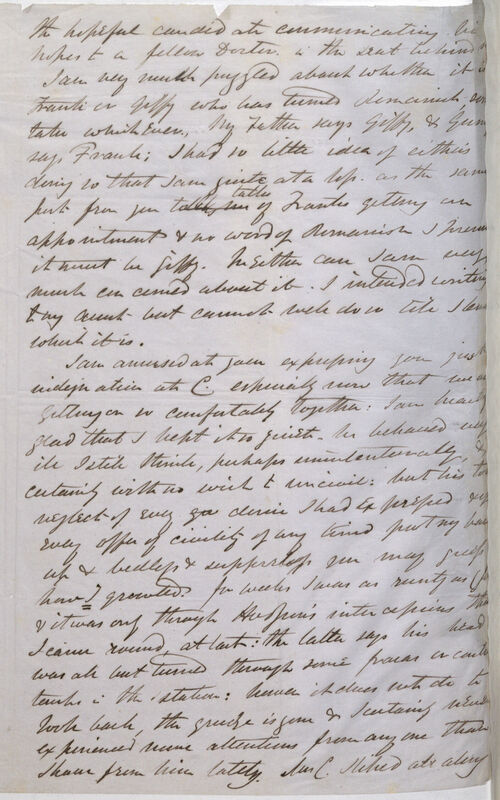 the hopeful candidate communicating his
hopes to a fellow Doctor in the seat behind
I am very much puzzled about whether it is
Frank or Giffy who has turned Romanish
later whichever, My Father says Giffy, &
says Frank; I had so little idea of either
doing so that I am quite at a loss. as the same
post from you tells me of Franks getting an
appointment & no word of Romanism I
it must be Giffy. Neither can I am very
much concerned about it. I intended writing
to my Aunt but cannot well do so till I know
which it is.
I am amused at your expressing your just
indignation at C. especially now that we are
getting on so comfortably together: I am heartily
glad that I kept it so quiet. he behaved very
ill I still think, perhaps unintentionally, &
certainly with no wish to uncivil: but his
neglect of every desire I had expressed &
every offer of civility of any kind put my back
up & bedless & supperless you may guess
how I growled. for weeks I was as rusty as
& it was only through Hodgson's intercessions that
I came round, at last: the latter says his head
was all but turned through some fracas or
in the station: however it does not do to
look back, the grudge is gone & I certainly never
experienced more attentions from any one than
I have from him lately. Mrs C. I liked all along